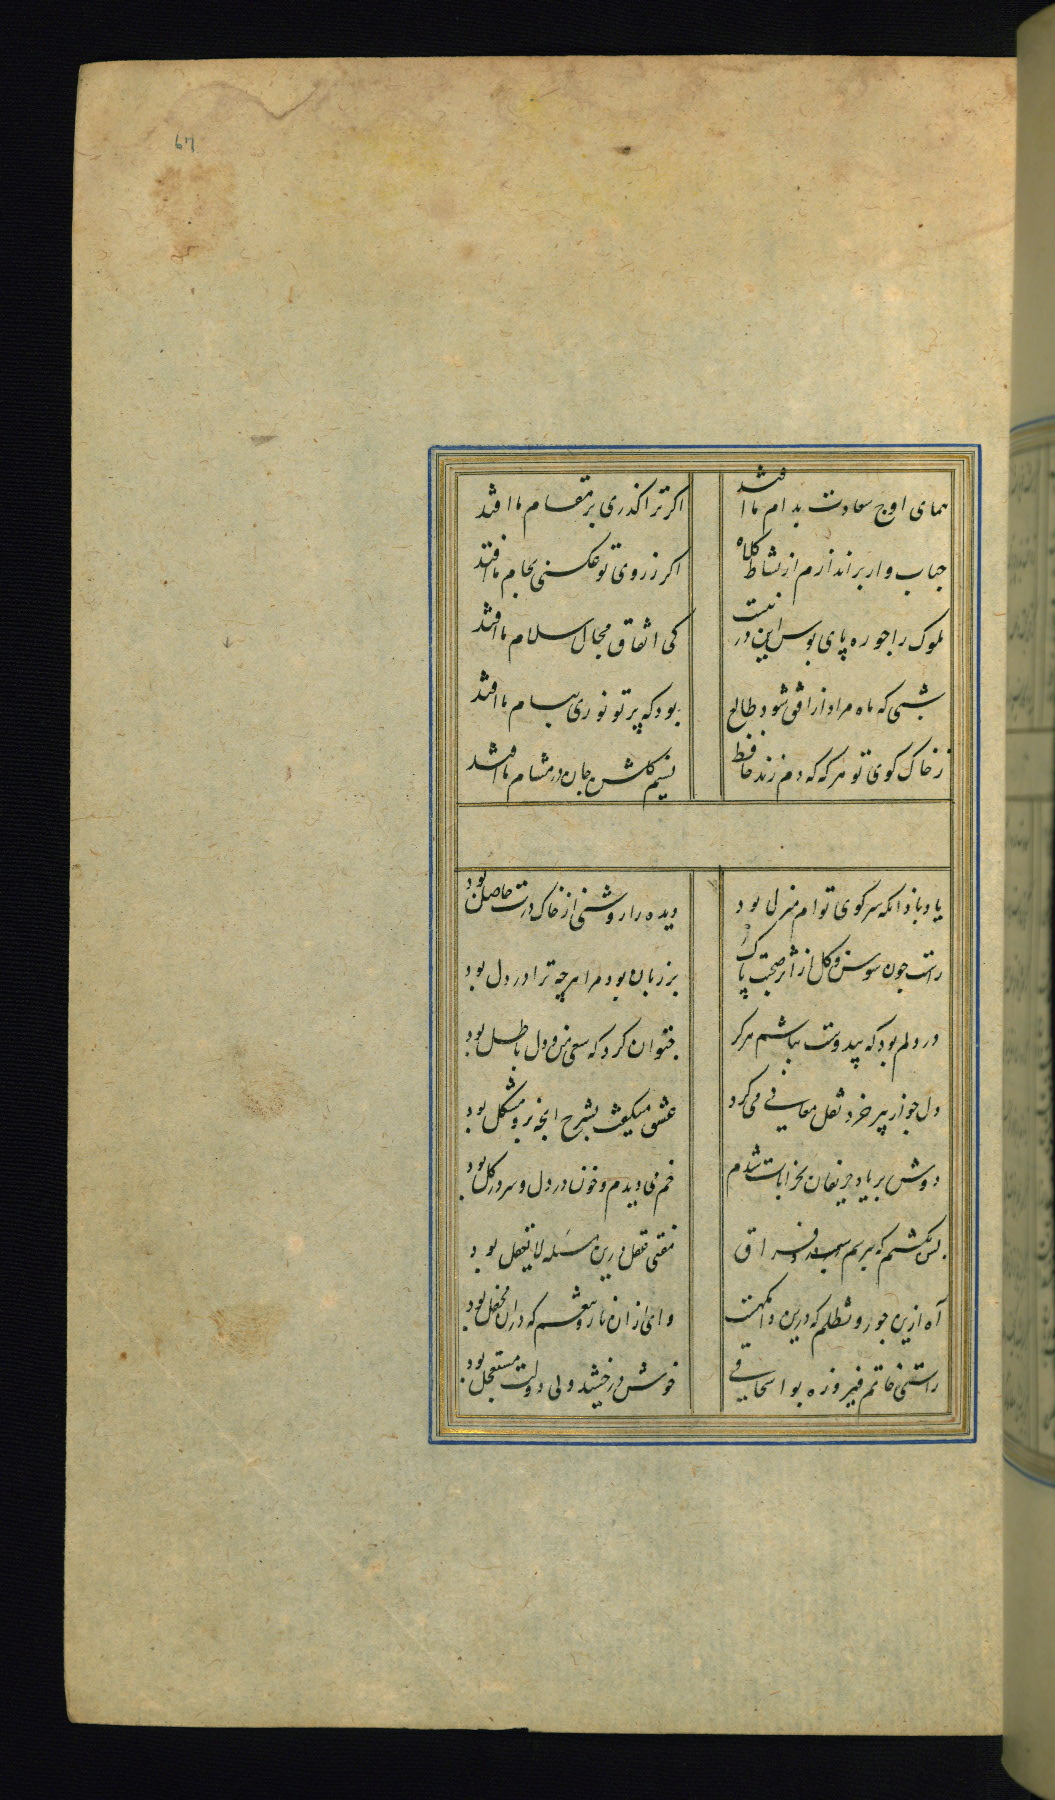 67
همای اوج سعادت بدام ما افتد
اگر ترا گذری بر مقام ما افتد
حباب وار براندازم از نشاط کلاه
اگر ز روی تو عکسی بجام ما افتد
ملوک را چو ره پای بوس این در نیست
کی اتفاق مجال سلام ما افتد
شبی که ماه مراد از افق شود طالع
بود که پرتو نوری ببام ما افتد
ز خاک کوی تو هر که که دم زند حافظ
نسیم گلشن جان در مشام ما افتد
یاد باد انکه سر کوی توام منزل بود
دیده را روشنی از خاک درت حاصل بود
راست چون سوسن و گل از اثر صحبت پاک
بر زبان بود مرا هر چه ترا در دل بود
در دلم بود که بیدوست نباشم هرگز
چتوان کرد که سعی من و دل باطل بود
دل چو از پیر خرد نقل معانی می کرد
عشق میکفت بشرح انچه برو مشکل بود
دوش بر یاد حریفان بخرابات شدم
خم می دیدم و خون در دل و سر در گل بود
بس بکشتم که بپرسم سبب درد فراق
مفتی عقل درین مسئله لایعقل بود
آه ازین جور و تظلم که درین دامگهست
وای از ان ناز و تنعم که دران محفل بود
راستی خاتم فیروزه بو اسحاقی
خوش درخشید ولی دولت مستعجل بود